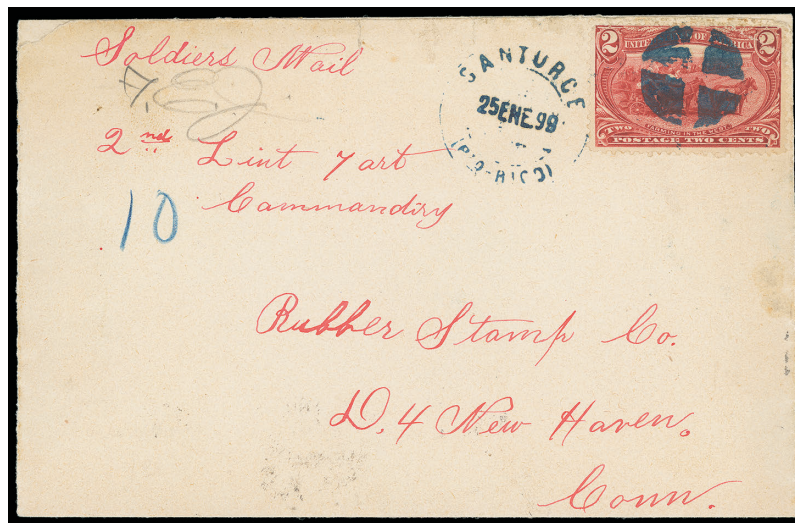 Soldiers Mail
2nd Lint 7 art
Commanding
10
SANTURCE
25 ENE 99
(PTO-RICO)
2 2
UNITED STATES OF AMERICA
FARMING IN THE WEST
TWO TWO
POSTAGE TWO CENTS
Rubber Stamp Co.
D. 4 New Haven.
Conn.